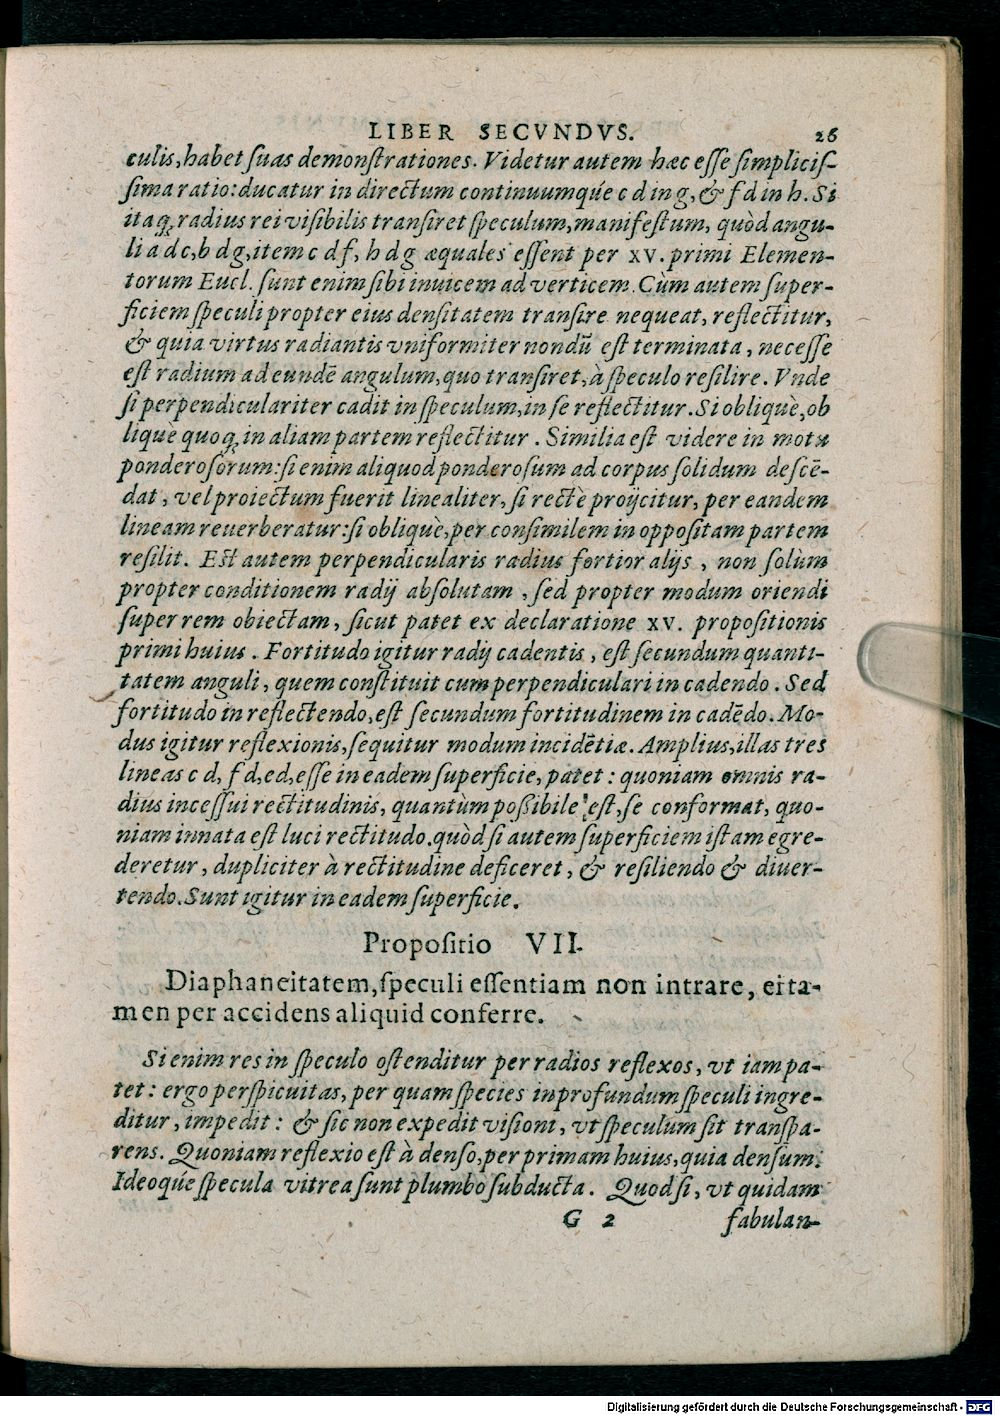 LIBER SECVNDVS. 26
culis, habet suas demonstrationes. Videtur autem hæc esse simplicis-
sima ratio: ducatur in directum continuumq́ue c d in g, & f d in h. Si
itaq; radius rei visibilis transiret speculum, manifestum, quòd angu-
li a d c, b d g, item c d f, h d g æquales essent per XV. primi Elemen-
torum Eucl. sunt enim sibi inuicem ad verticem. Cùm autem super-
ficiem speculi propter eius densitatem transire nequeat, reflectitur,
& quia virtus radiantis vniformiter nondũ est terminata, necesse
est radium ad eundẽ angulum, quo transiret, à speculo resilire. Vnde
si perpendiculariter cadit in speculum, in se reflectitur. Si obliquè, ob
liquè quoq; in aliam partem reflectitur. Similia est videre in motu
ponderosorum: si enim aliquod ponderosum ad corpus solidum descẽ-
dat, vel proiectum fuerit linealiter, si rectè proijcitur, per eandem
lineam reuerberatur: si obliquè, per consimilem in oppositam partem
resilit. Est autem perpendicularis radius fortior alijs, non solùm
propter conditionem radij absolutam, sed propter modum oriendi
super rem obiectam, sicut patet ex declaratione XV. propositionis
primi huius. Fortitudo igitur radij cadentis, est secundum quanti-
tatem anguli, quem constituit cum perpendiculari in cadendo. Sed
fortitudo in reflectendo, est secundum fortitudinem in cadẽdo. Mo-
dus igitur reflexionis, sequitur modum incidẽtiæ. Amplius, illas tres
lineas c d, f d, e d, esse in eadem superficie, patet: quoniam omnis ra-
dius incessui rectitudinis, quantùm poßibile est, se conformat, quo-
niam innata est luci rectitudo. quòd si autem superficiem istam egre-
deretur, dupliciter à rectitudine deficeret, & resiliendo & diuer-
tendo. Sunt igitur in eadem superficie.
Propositio VII.
Diaphaneitatem, speculi essentiam non intrare, ei ta-
men per accidens aliquid conferre.
Si enim res in speculo ostenditur per radios reflexos, vt iam pa-
tet: ergo perspicuitas, per quam species in profundum speculi ingre-
ditur, impedit: & sic non expedit visioni, vt speculum sit transpa-
rens. Quoniam reflexio est à denso, per primam huius, quia densum.
Ideoq́ue specula vitrea sunt plumbo subducta. Quod si, vt quidam
G 2 fabulan-
Digitalisierung gefördert durch die Deutsche Forschungsgemeinschaft - DFG